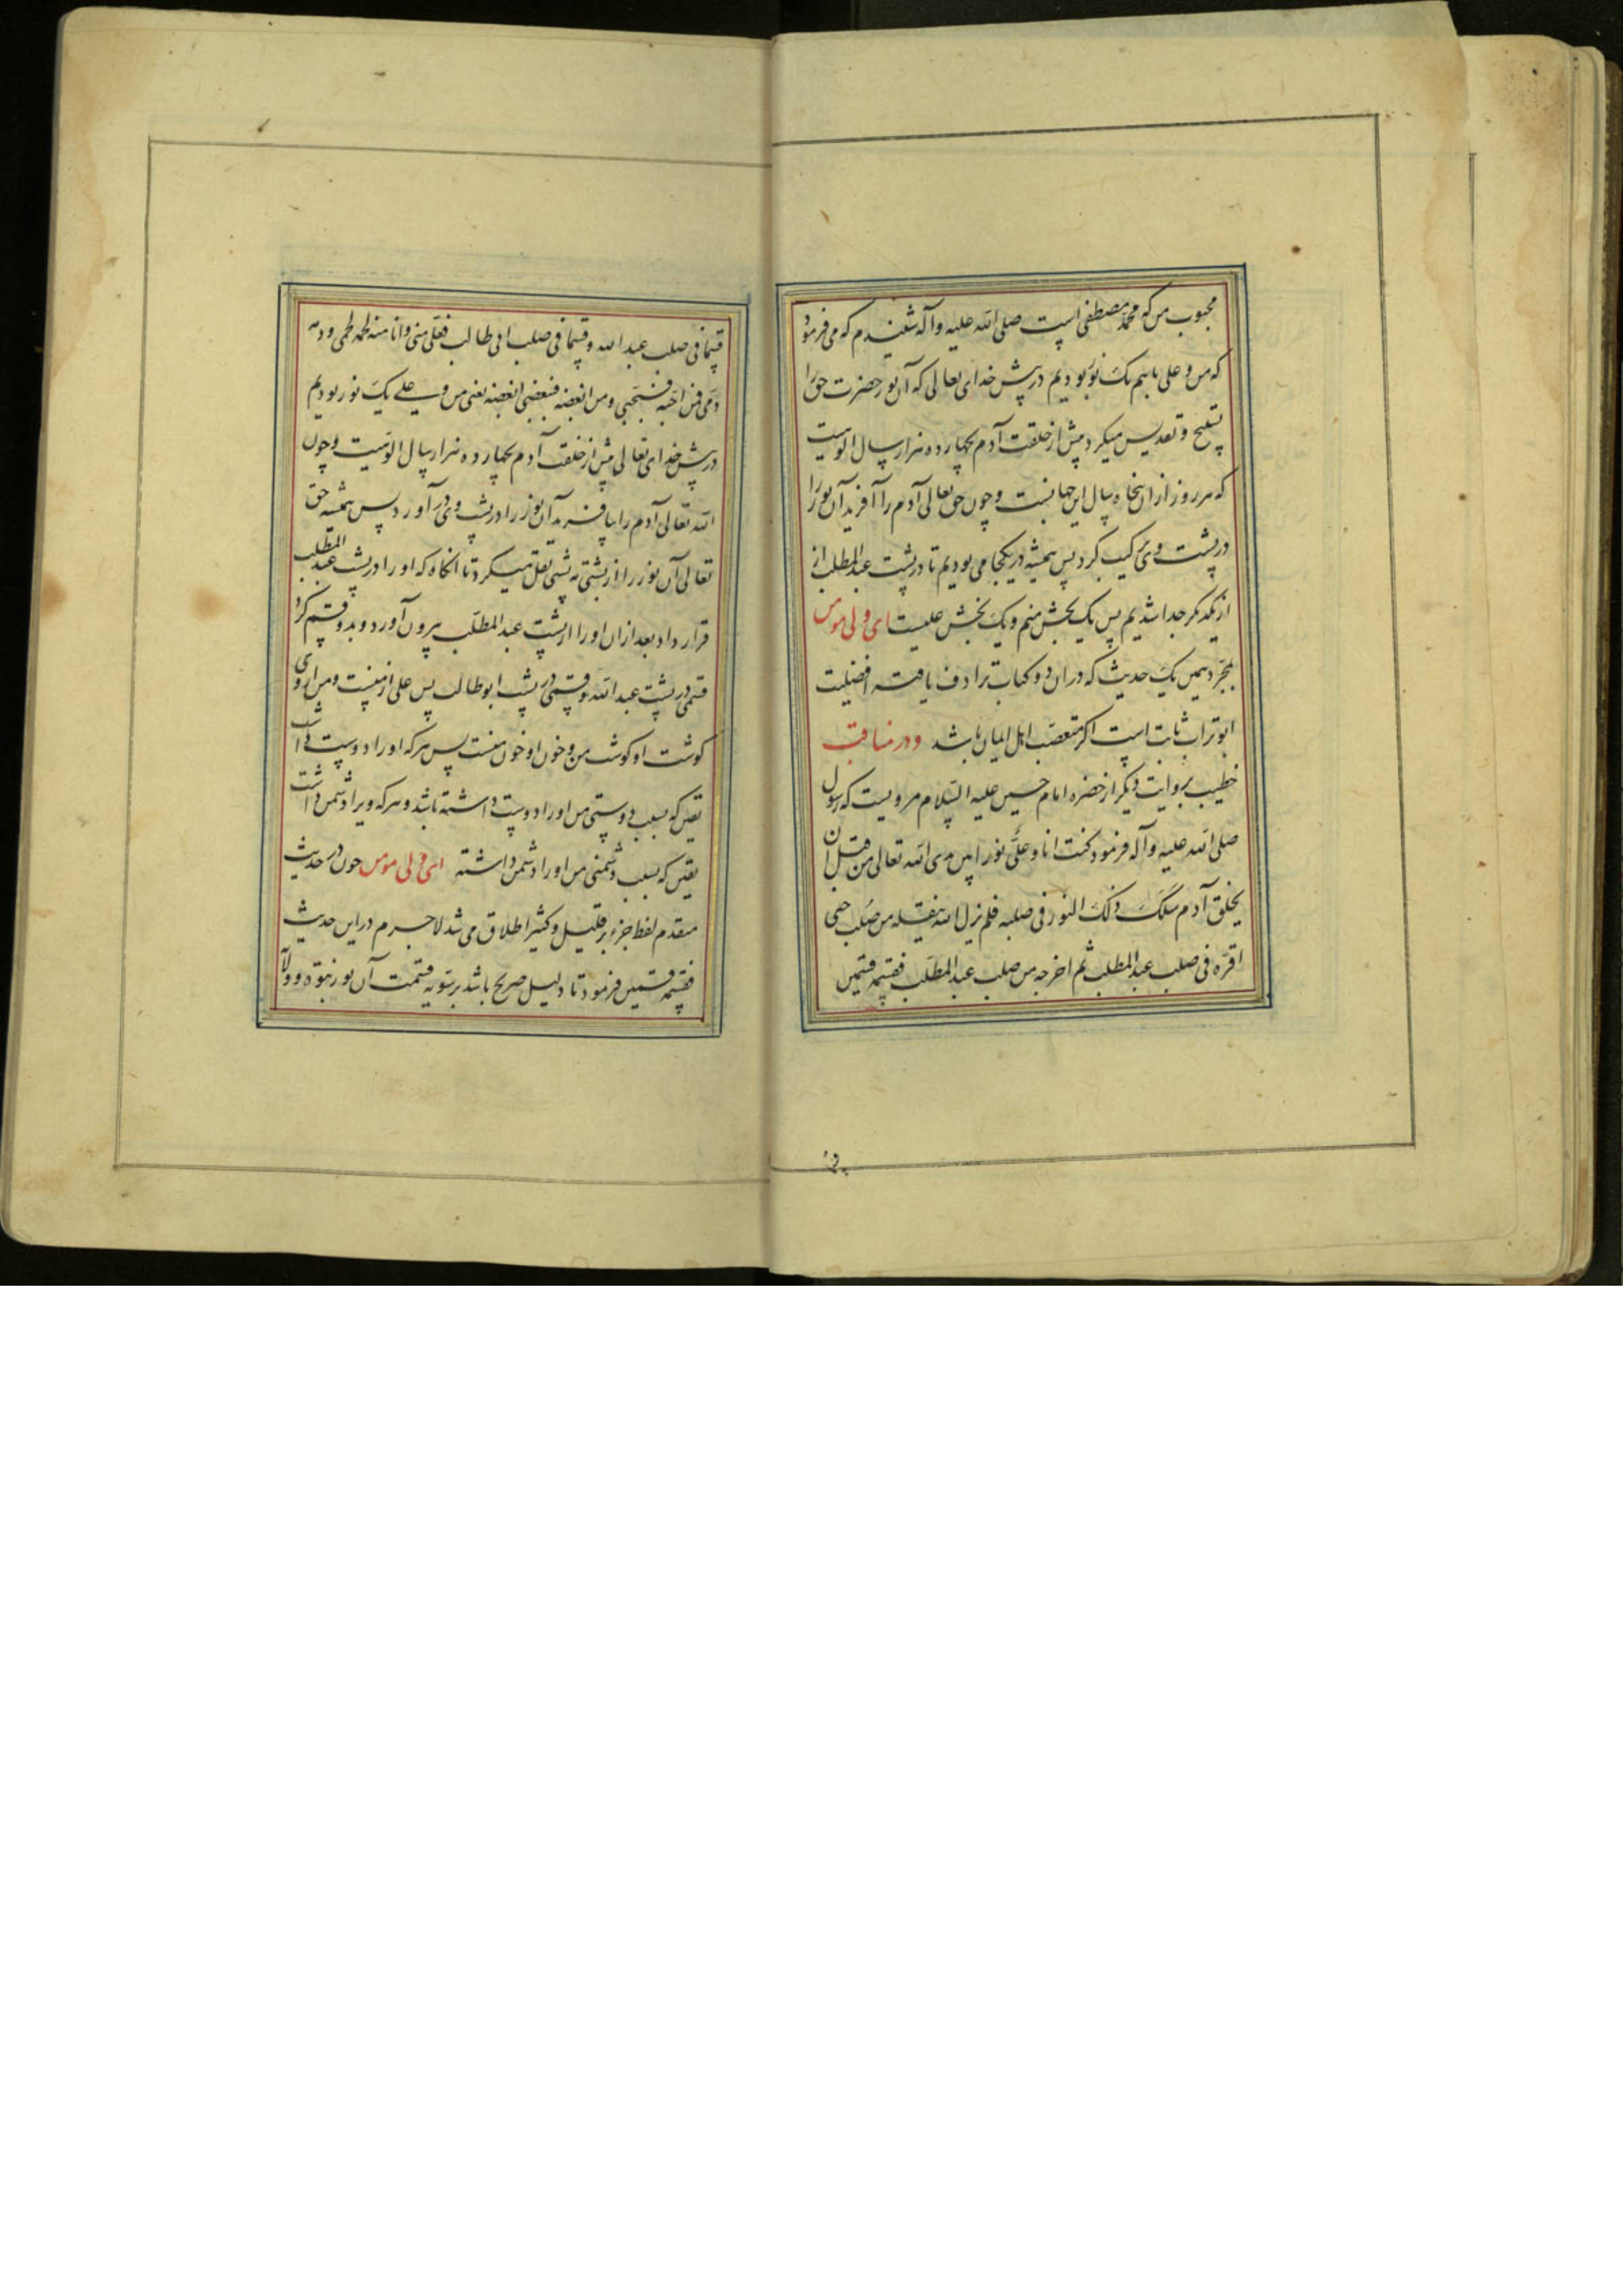 محبوب من که محمد مصطفی است صلی الله علیه وآله شنیدم که می فرمود
که من و علی باهم یک نور بودیم در پیش خدای تعالی که آن نور حضرت حق را
تسبیح و تقدیس میکرد پیش از خلقت آدم بچهارده هزار سال الوهیت
که هر روز از آن پنجاه سال این جهانیست و چون حق تعالی آدم را آفرید آن نور را
در پشت وی ترکیب کرد پس همیشه در یکجا می بودیم تا در پشت عبدالمطلب از
از یکدیکر جدا شدیم پس یک بخش منم و یک بخش علیست ای ولی مومن
بمجرد همین یک حدیث که در آن دو کتاب ترادف یافته افضلیت
ابوتراب ثابت است اکر متعصب اهل ایمان باشد و در مناقب
خطیب بروایت دیکر از حضرة امام حسین علیه السلام مرویست که رسول
صلی الله علیه وآله فرمود کنت انا وعلی نورا بین یدی الله تعالی من قبل ان
یخلق آدم سلک ذلک النور فی صلبه فلم یزل الله ینقله من صلب حتی
اقره فی صلب عبدالمطلب ثم اخرجه من صلب عبدالمطلب فقسمه قسمین
قسما فی صلب عبدالله وقسما فی صلب ابی طالب فعلی منی وانا منه لحمه لحمی ودمه
دمی فمن احبه فبحبی ومن ابغضه فببغضی ابغضه یعنی من و علی یک نور بودیم
در پیش خدای تعالی پیش از خلقت آدم بچهارده هزار سال الوهیت و چون
الله تعالی آدم را بیافرید آن نور را در پشت وی در آورد پس همیشه حق
تعالی آن نور را از پشتی به پشتی نقل میکرد تا انکاه که او را در پشت عبدالمطلب
قرار داد بعد از ان او را از پشت عبدالمطلب بیرون آورد و بدو قسم کرد
قسمی در پشت عبدالله و قسمی در پشت ابوطالب پس علی از منست و من از وی
کوشت او کوشت من و خون او خون منست پس هر که او را دوست داشت
یقین که بسبب دوستی من او را دوست داشته باشد و هر که ویرا دشمن داشت
یقین که بسبب دشمنی من او را دشمن داشته ای ولی مومن چون در حدیث
متقدم لفظ جزء بر قلیل و کثیر اطلاق می شد لاجرم در این حدیث
فقسمه قسمین فرمود تا دلیل صریح باشد بر تسویه قسمت آن نور نبوة و ولایة